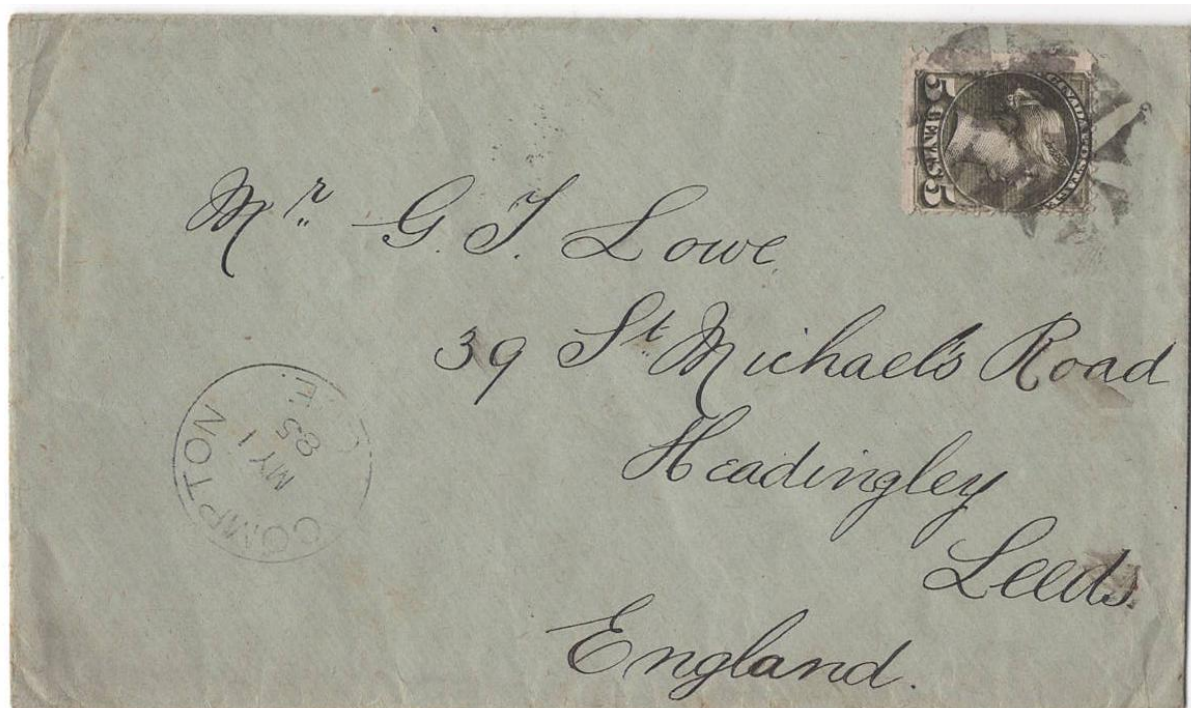 CANADA POSTAGE
5 CENTS 5
Mr. G. T. Lowe
39 St. Michael's Road
Headingley
Leeds.
England.
COMPTON
MY 1
85
C.E.